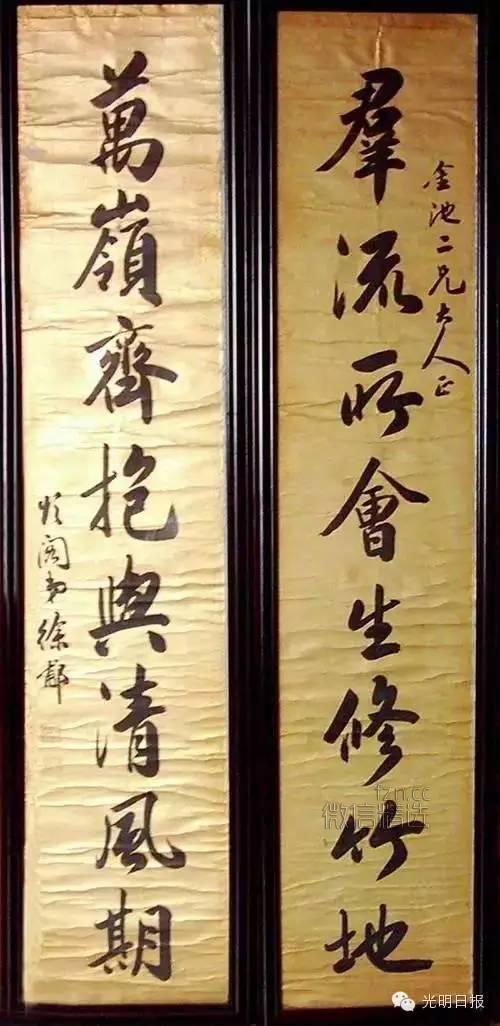 金池二兄大人正
羣流所會生修竹地
萬嶺齊抱與清風期
頌閣弟徐郙
fzn.cc
微信精选
光明日报